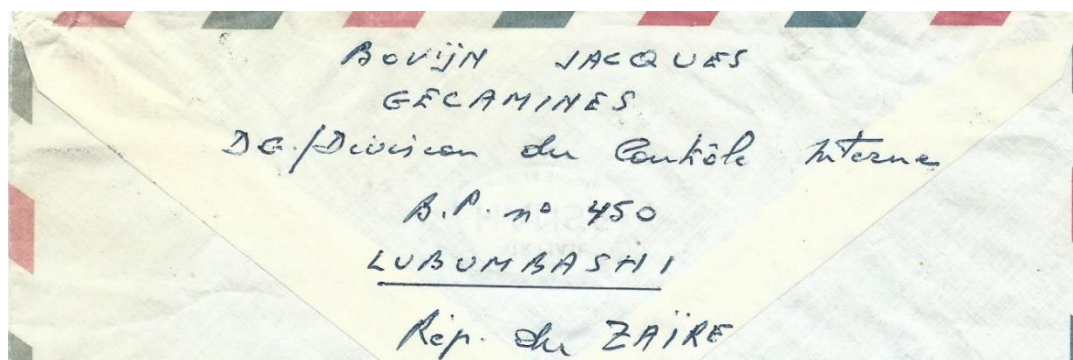 BOVIJN JACQUES
GECAMINES
DG./Division du Contrôle Interne
B.P. n° 450
LUBUMBASHI
Rép. du ZAÏRE